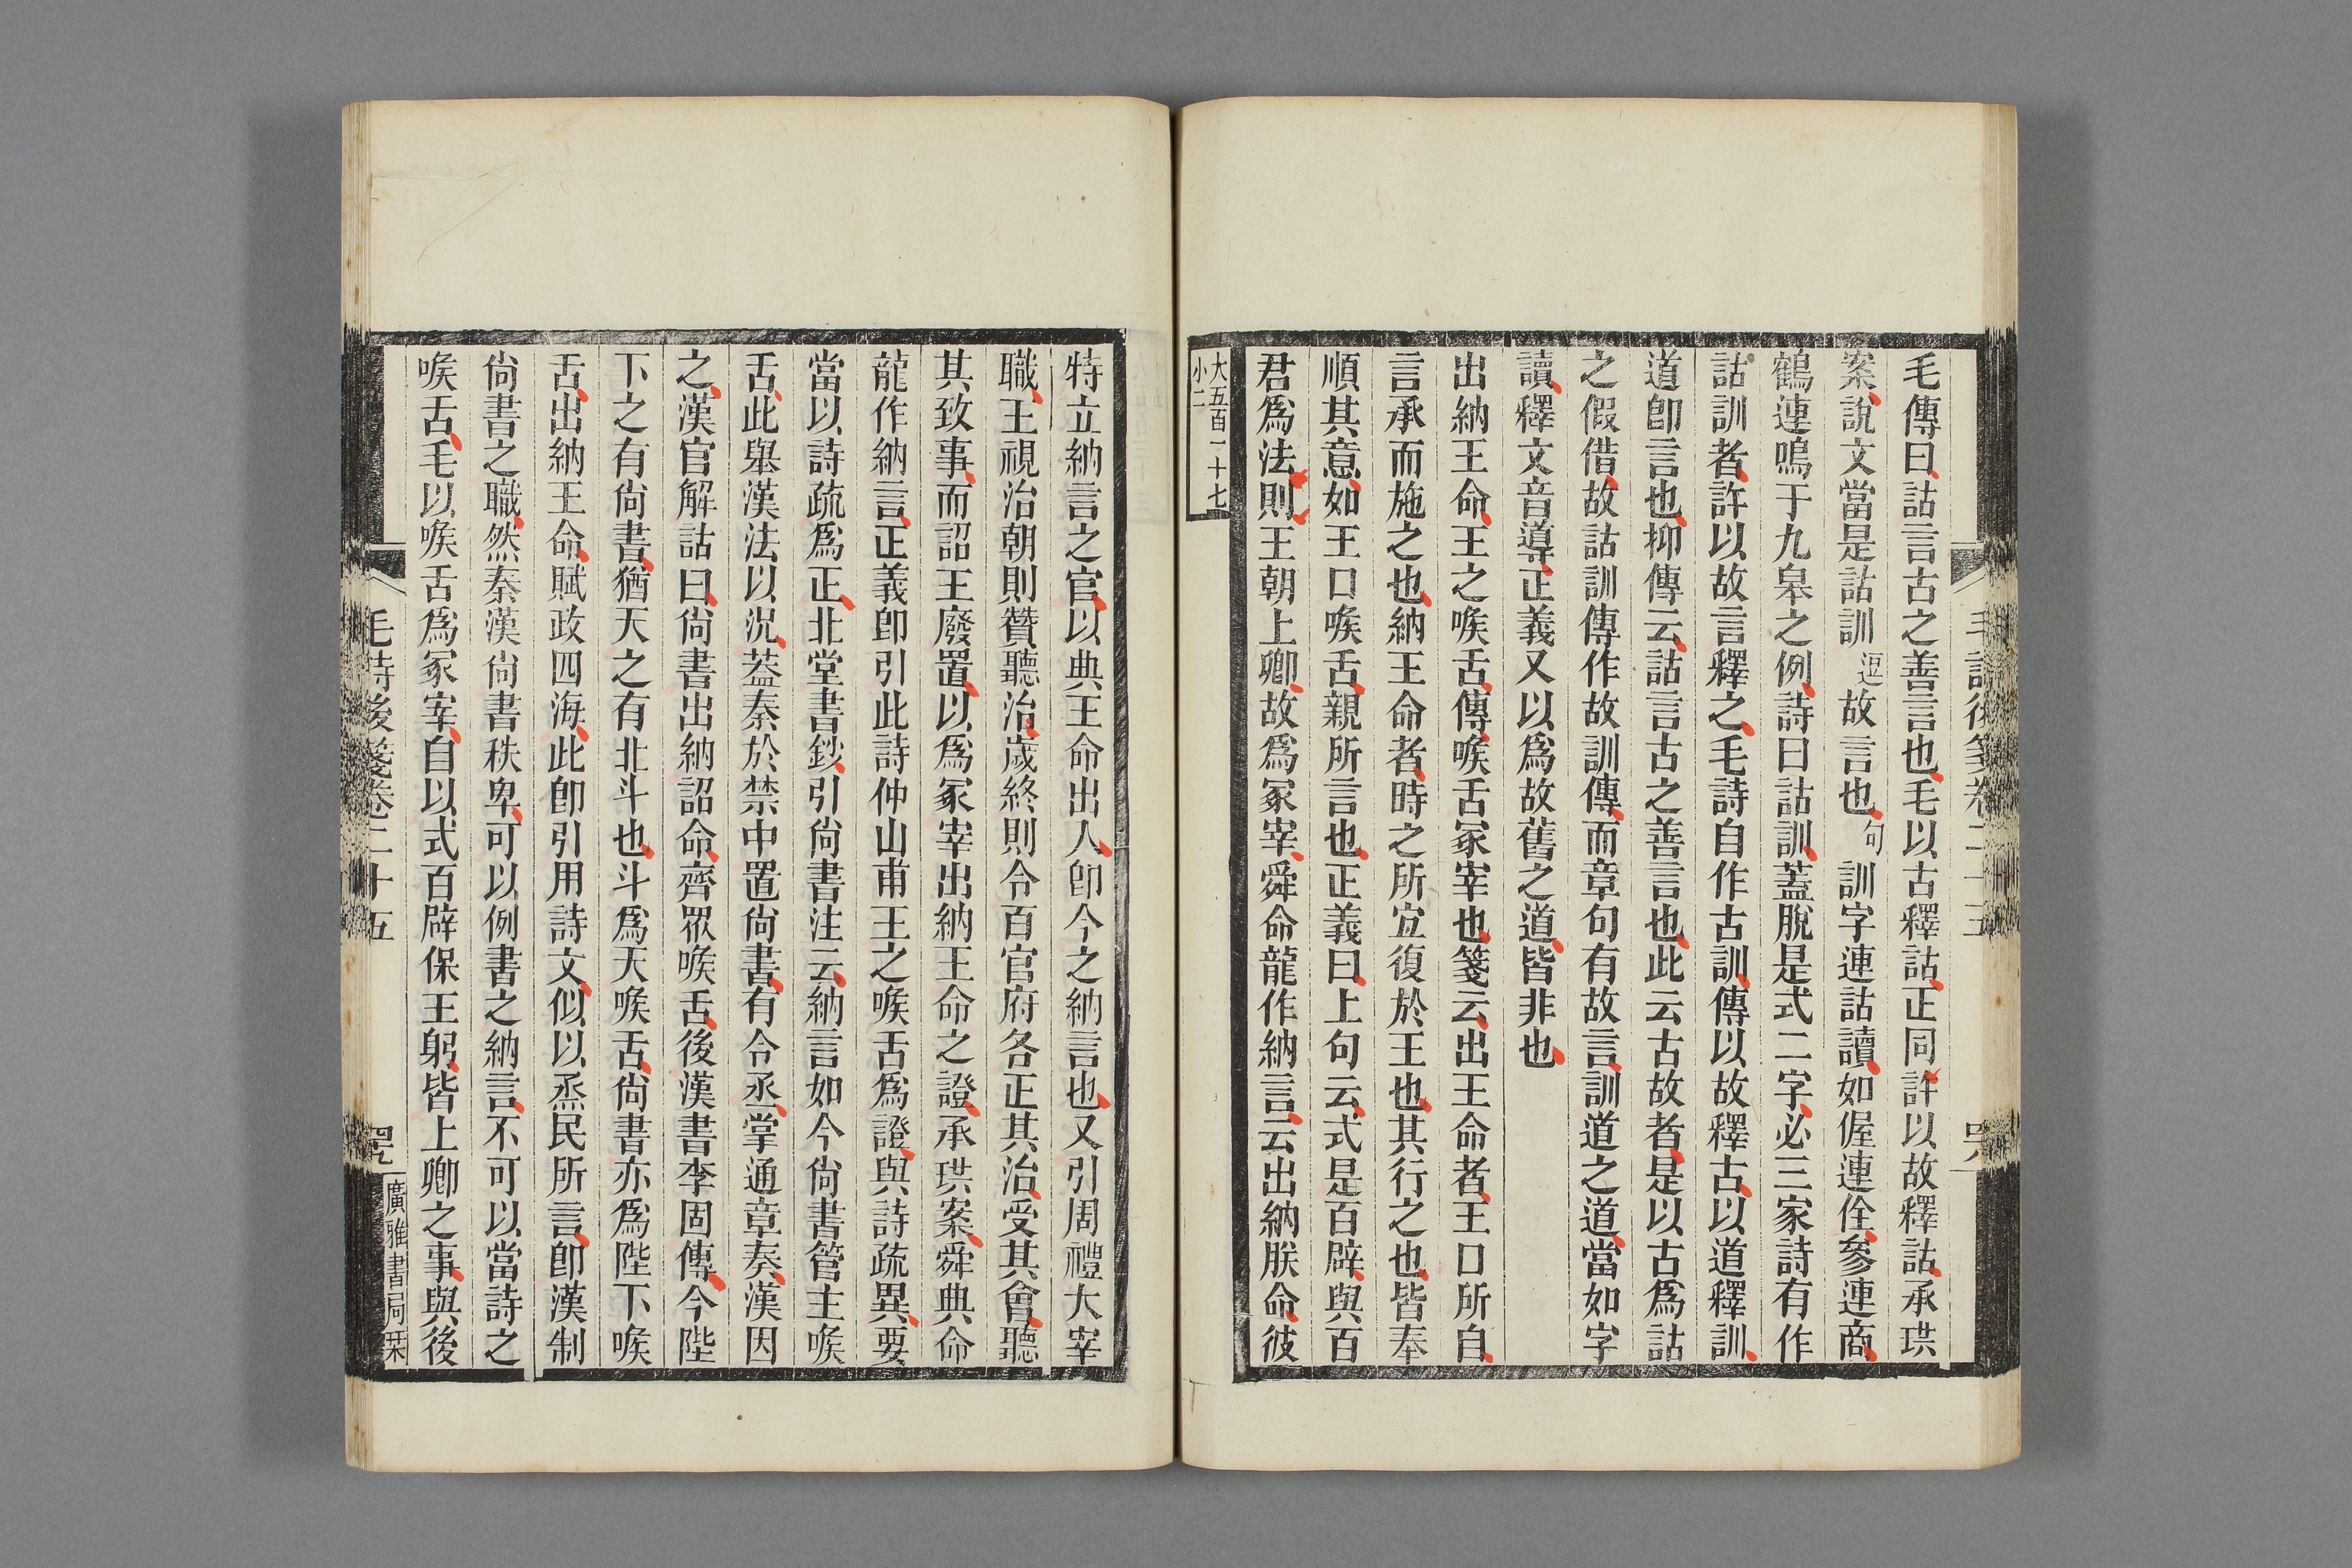 毛傳曰詁言古之善言也毛以古釋詁正同許以故釋詁承珙
案說文當是詁訓逗故言也句訓字連詁讀如偓連佺參連商
鶴連鳴于九皋之例詩曰詁訓蓋脫是式二字必三家詩有作
詁訓者許以故言釋之毛詩自作古訓傳以故釋古以道釋訓
道卽言也抑傳云詁言古之善言也此云古故者是以古爲詁
之假借故詁訓傳作故訓傳而章句有故言訓道之道當如字
讀釋文音導正義又以爲故舊之道皆非也
出納王命王之喉舌傳喉舌冢宰也箋云出王命者王口所自
言承而施之也納王命者時之所宜復於王也其行之也皆奉
順其意如王口喉舌親所言也正義曰上句云式是百辟與百
君爲法則王朝上卿故爲冢宰舜命龍作納言云出納朕命彼
大五百一十七
小二
特立納言之官以典王命出入卽今之納言也又引周禮大宰
職王視治朝則贊聽治歲終則令百官府各正其治受其會聽
其致事而詔王廢置以爲冢宰出納王命之證承珙案舜典命
龍作納言正義卽引此詩仲山甫王之喉舌爲證與詩疏異要
當以詩疏爲正北堂書鈔引尙書注云納言如今尙書管主喉
舌此舉漢法以況葢秦於禁中置尙書有令丞掌通章奏漢因
之漢官解詁曰尙書出納詔命齊眾喉舌後漢書李固傳今陛
下之有尙書猶天之有北斗也斗爲天喉舌尙書亦爲陛下喉
舌出納王命賦政四海此卽引用詩文似以烝民所言卽漢制
尙書之職然秦漢尙書秩卑可以例書之納言不可以當詩之
喉舌毛以喉舌爲冢宰自以式百辟保王躬皆上卿之事與後
毛詩後箋卷二十五
廣雅書局栞